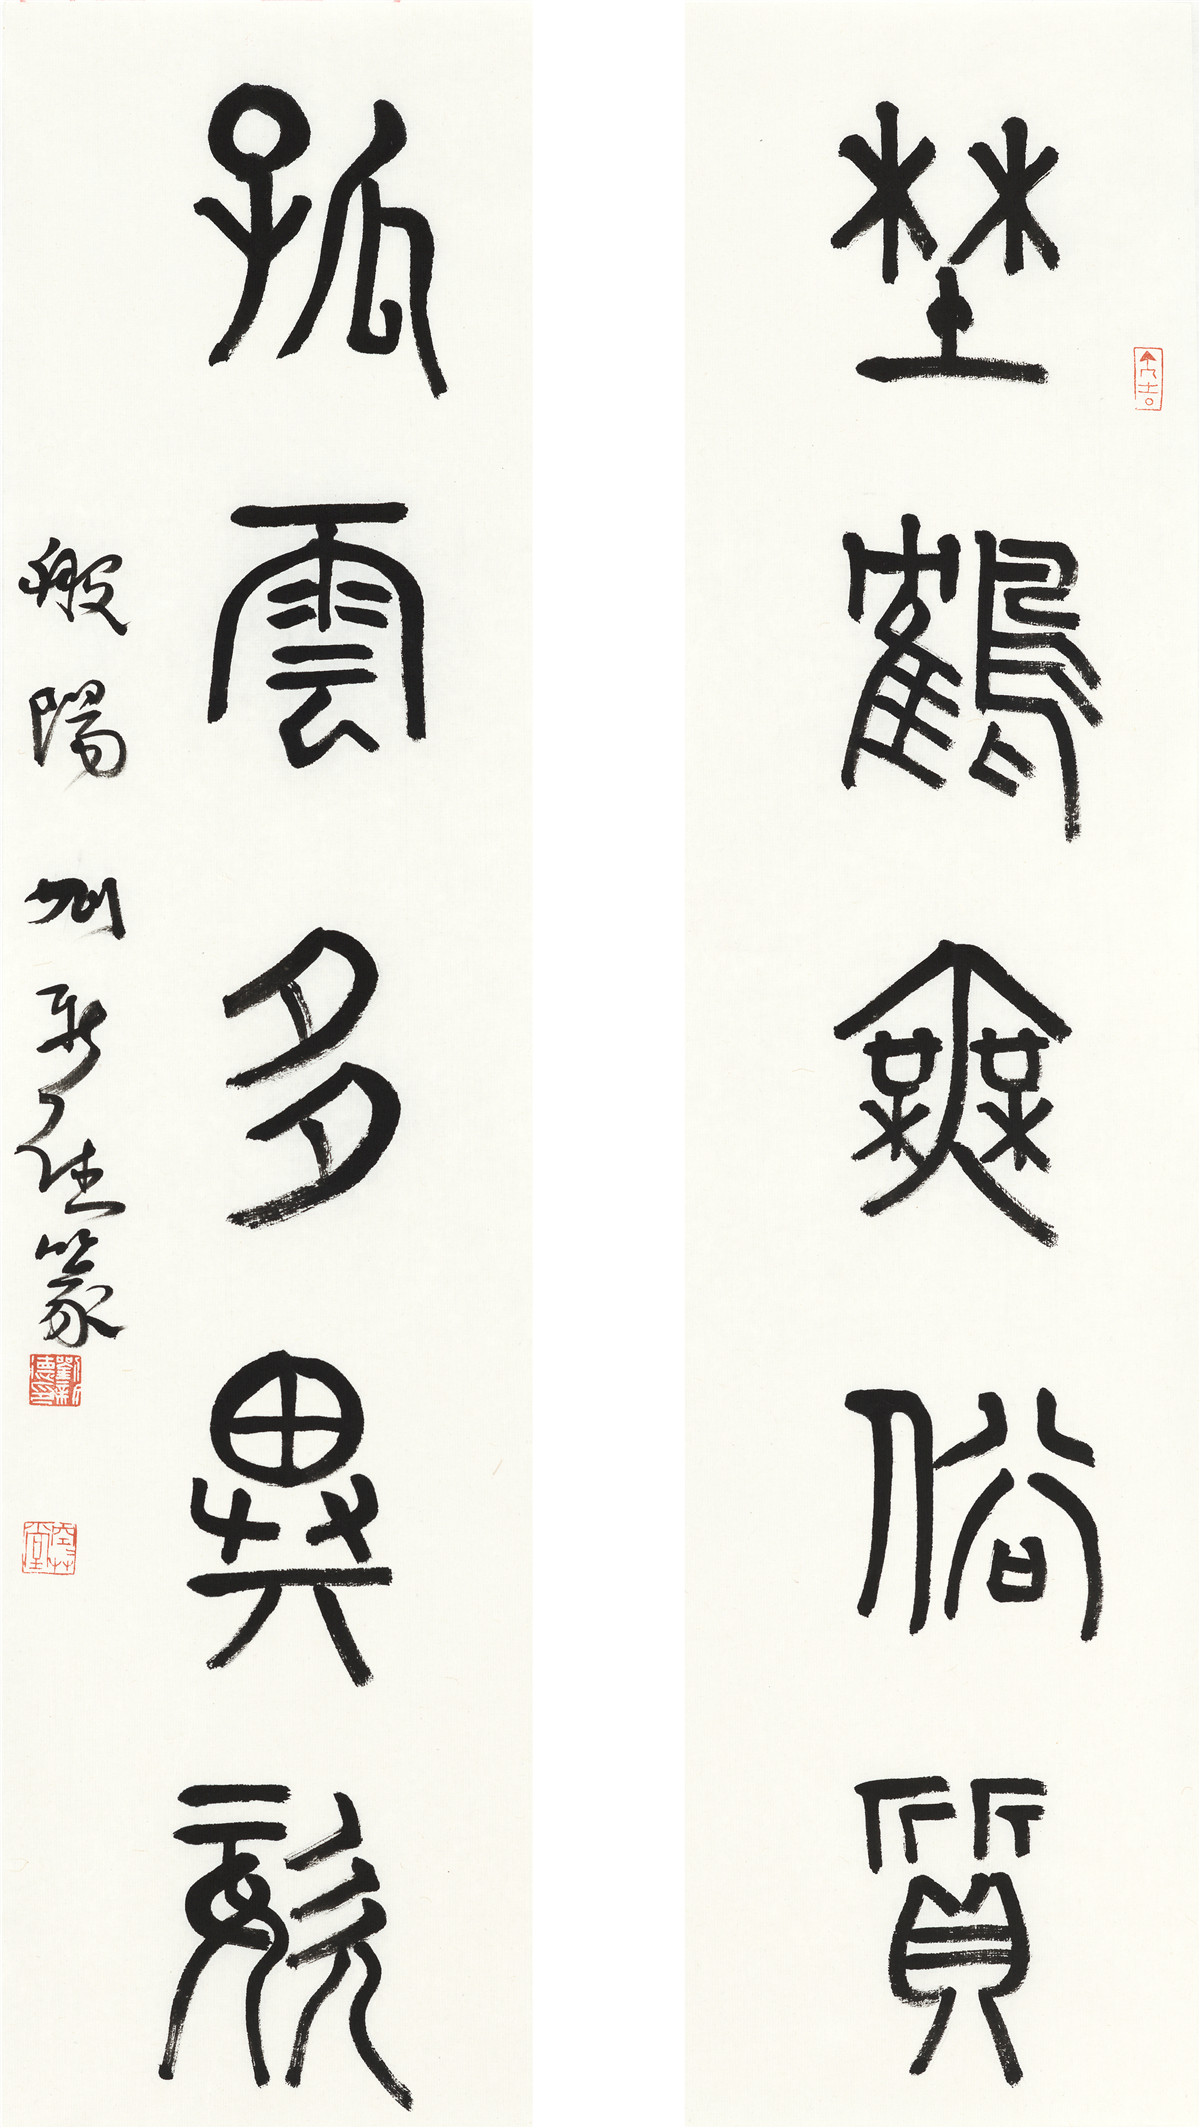 埜鶴無俗質
孤雲多異姿
般陽劉新德篆